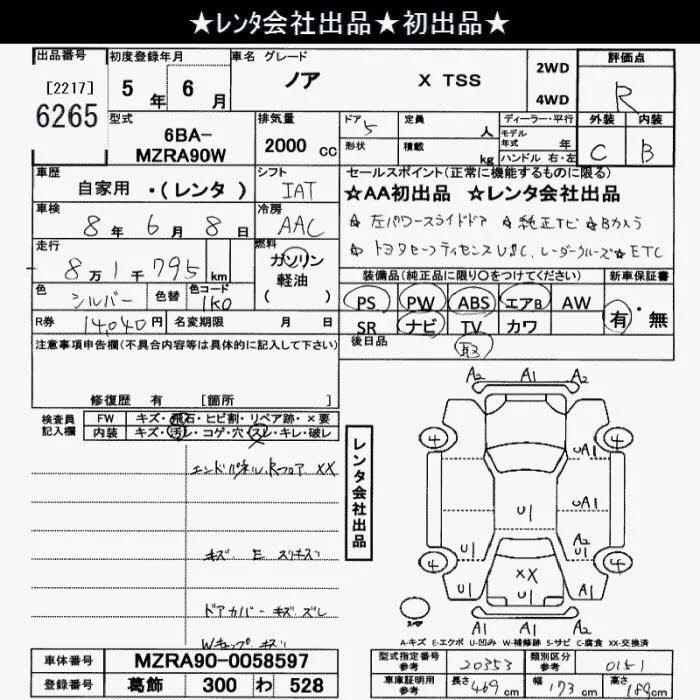 ★レンタ会社出品★初出品★
出品番号 初度登録年月 車名 グレード 評価点
[2217] 5年 6月 ノア X TSS 2WD R
6265 4WD
型式 排気量 ドア 5 定員 人 ディーラー・平行 外装 内装
6BA- 2000 cc 形状 積載 kg モデル年式 年 C B
MZRA90W ハンドル 右・左
車歴 シフト セールスポイント(正常に機能するものに限る)
自家用 ・(レンタ) IAT ★AA初出品 ★レンタ会社出品
車検 冷房 ☆左パワースライドドア ☆純正TV ☆Bカメラ
8年 6月 8日 AAC
走行 燃料 ☆トヨタセーフティセンス USC.レーダークルーズ☆ETC
8万1千795km ガソリン 装備品(純正品に限り○をつけてください) 新車保証書
軽油
( )
色 シルバー 色替 色コード 1K0 PS PW ABS エアB AW 有・無
R券 14,040円 名変期限 月 日 SR ナビ TV カワ
注意事項申告欄(不具合内容等は具体的に記入して下さい) 後日品 取
修復歴 有 [箇所 ]
検査員 FW キズ・飛石・ヒビ割・リペア跡・×要
記入欄 内装 キズ・汚レ・コゲ・穴・スレ・キレ・破レ
レンタ会社出品
エンドパネル、Rフロア XX
キズ E スリキズ
ドアカバー キズ ズレ
Wキャップ キズ
A2 A1 A2
4 4
UA1
U1 U1 UA1
A2
4 XX U1 4
U1 U1 U1
A2 A1 A2
スペア
A-キズ E-エクボ U-凹み W-補修跡 S-サビ C-腐食 XX-交換済
車体番号 MZRA90-0058597 型式指定番号 参考 20353 類別区分 参考 0151
登録番号 葛飾 300 わ 528 車庫証明用 参考 長さ 469cm 幅 173cm 高さ 189cm